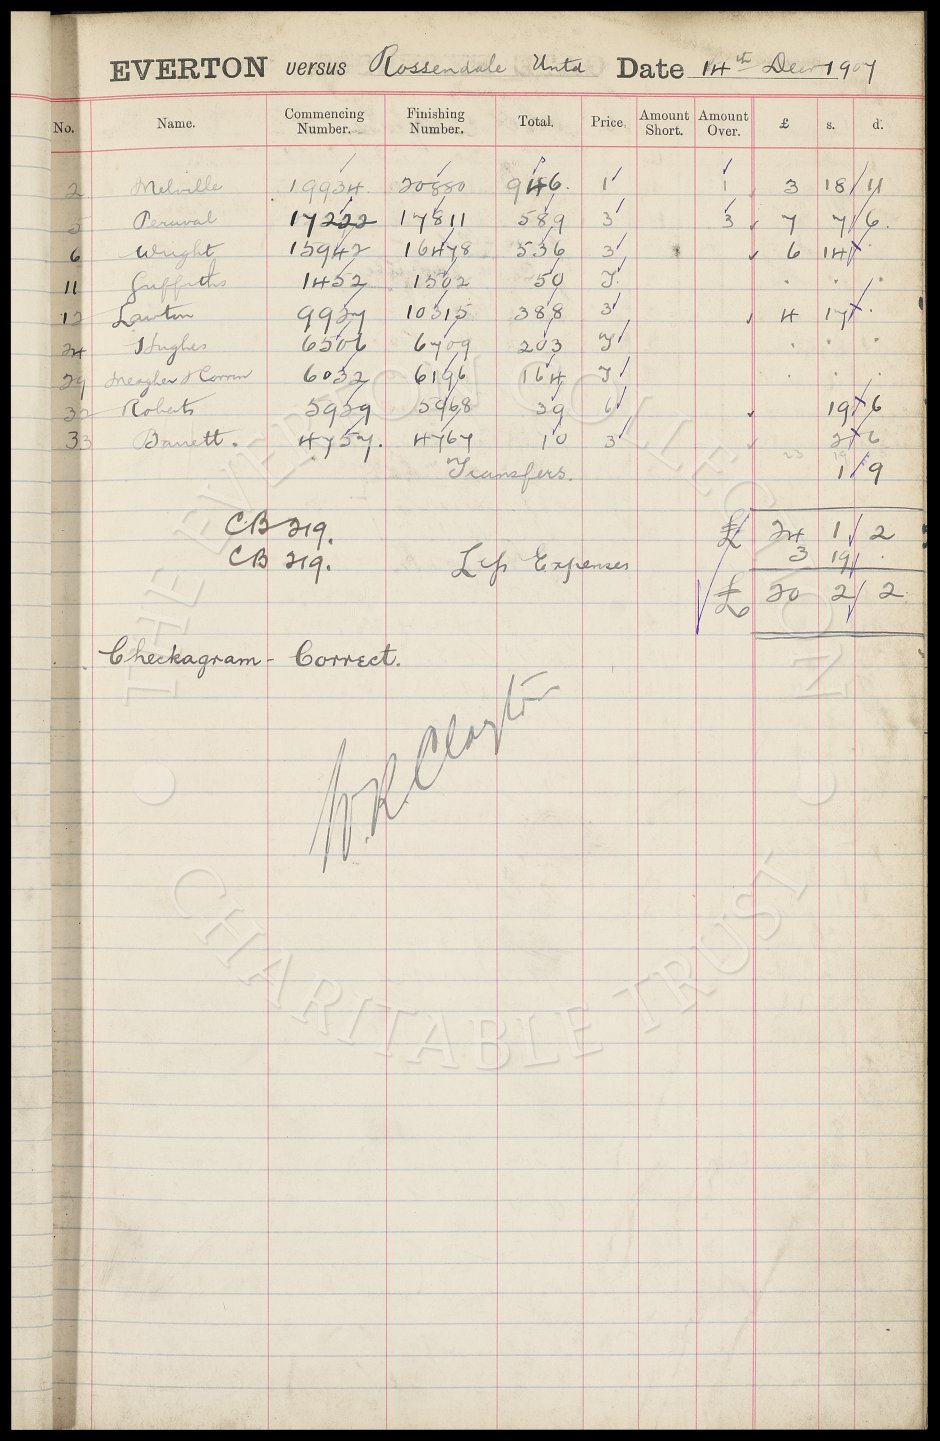 EVERTON versus Rossendale Untd Date 14th Decr 1907
No. Name. Commencing Number. Finishing Number. Total. Price. Amount Short. Amount Over. £ s. d.
2 Melville 19934 20880 946 1 1 3 18 11
5 Percival 17222 17811 589 3 3 7 7 6
6 Wright 15942 16478 536 3 6 14 .
11 Griffiths 1452 1502 50 T . . .
12 Lawton 9927 10315 388 3 4 17 .
24 Hughes 6506 6709 203 T . . .
29 Meagher & 6032 6196 164 T . . .
32 Roberts 5929 5968 39 6 19 6
33 Barrett. 4757. 4767 10 3 2 6
23 19
Transfers. 1 9
CB 219. £ 24 1 2
CB 219. Less Expenses 3 19 .
£ 20 2 2
Checkagram - Correct.
W.R. Clayton
THE EVERTON COLLECTION
CHARITABLE TRUST